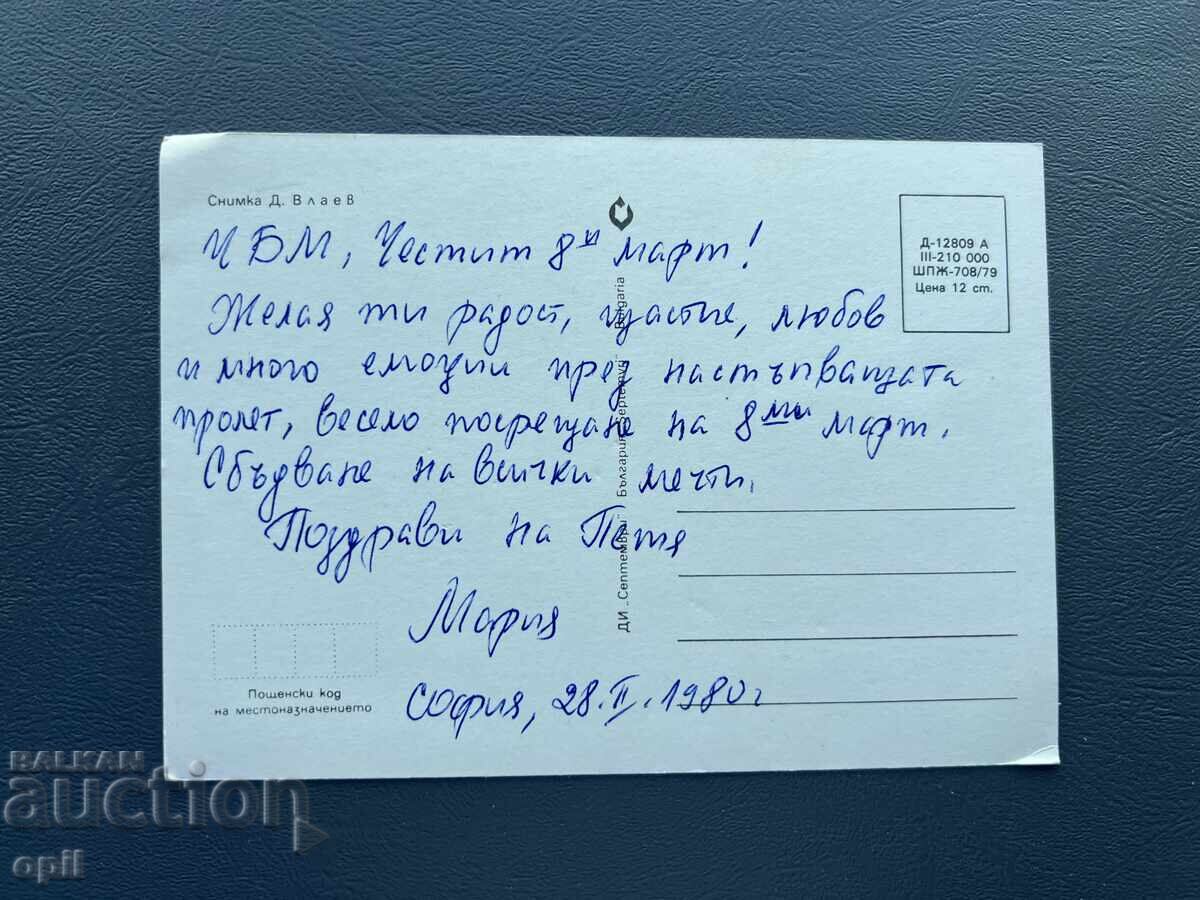 Снимка Д. Влаев
Д-12809 А
III-210 000
ШПЖ-708/79
Цена 12 ст.
ЧБМ, Честит 8ᵐⁱ март!
Желая ти радост, щастие, любов
и много емоции пред настъпващата
пролет, весело посрещане на 8ми март.
Сбъдване на всички мечти.
Поздрави на Петя
Мария
София, 28.II.1980 г
ДИ „Септември" България "Septemvri" Bulgaria
Пощенски код
на местоназначението
BALKAN
auction
opil